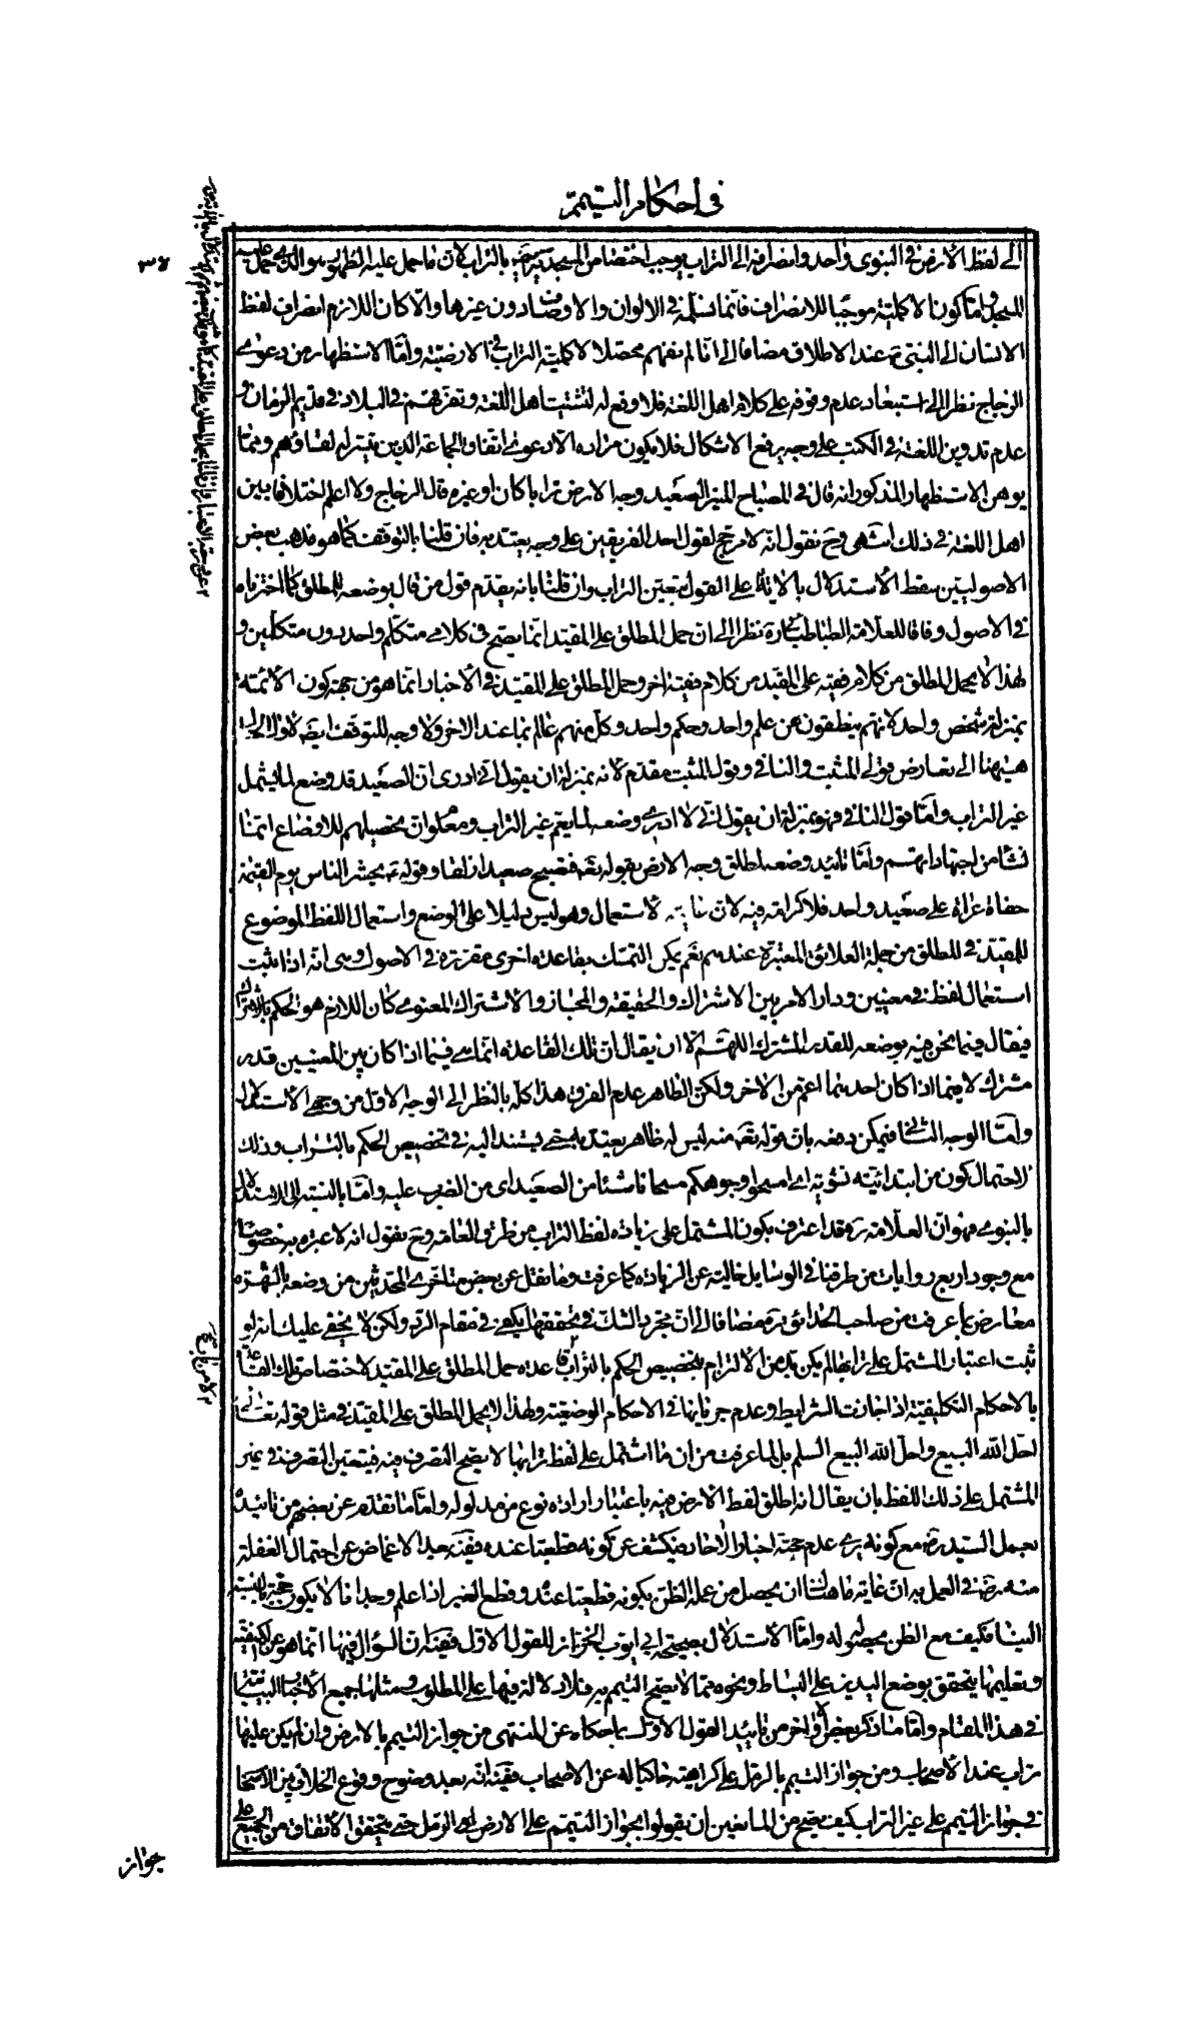 في احكام التيمم
الى لفظ الأرض في النبوى واحد وانصرافه الى التراب يوجب اختصاص المسجدية بالتراب لان ما حمل عليه الطهور هو الذي حمل عليه
المسجد واما كون الاكملية موجبا للانصراف فانما نسلمه في الالوان والاوصاف دون غيرها والا كان اللازم انصراف لفظ
الانسان الى النبى عند الاطلاق مضافا الى انا لم نفهم محصلا لاكملية التراب في الارضية واما الاستظهار من دعوى
الزجاج نظرا الى استبعاد عدم وقوفه على كلام اهل اللغة فلا وقع له لتشتت اهل اللغة وتفرقهم في البلاد في قديم الزمان و
عدم تدوين اللغة في الكتب على وجه يرفع الاشكال فلا يكون مراده الا دعوى اتفاق الجماعة الذين تيسر له لقاؤهم ومما
يوهن الاستظهار المذكور انه قال في المصباح المنير الصعيد وجه الارض ترابا كان او غيره قال الزجاج ولا اعلم اختلافا بين
اهل اللغة في ذلك انتهى وح نقول انه لا مرجح لقول احد الفريقين على وجه يعتد به فان قلنا بالتوقف كما هو مذهب بعض
الاصوليين سقط الاستدلال بالاية على القول بتعين التراب وان قلنا بانه يقدم قول من قال بوضعه للمطلق كما اخترناه
في الاصول وفاقا للعلامة الطباطبائي ره نظرا الى ان حمل المطلق على المقيد انما يصح في كلامى متكلم واحد دون متكلمين و
لهذا لا يحمل المطلق من كلام فقيه على المقيد من كلام فقيه اخر وحمل المطلق على المقيد في الأخبار انما هو من جهة كون الأئمة
بمنزلة شخص واحد لانهم ينطقون عن علم واحد وحكم واحد وكل منهم عالم بما عند الاخر ولا وجه للتوقف ايضا لاوال الحال
هيهنا الى تعارض قولى المثبت والنافي وقول المثبت مقدم لانه بمنزلة ان يقول انى ادرى ان الصعيد قد وضع لما يشمل
غير التراب واما قول النافي فهو بمنزلة ان يقول انى لا ادرى وضعه لما يعم غير التراب ومعلوم ان تحصيلهم للاوضاع انما
نشأ من اجتهاداتهم واما تأييد وضعه لمطلق وجه الارض بقوله تعالى فتصبح صعيدا زلقا وقوله يحشر الناس يوم القيمة
حفاة عراة على صعيد واحد فلا كرامة فيه لان غايته الاستعمال وهو ليس دليلا على الوضع واستعمال اللفظ الموضوع
للمقيد في المطلق من جملة العلائق المعتبرة عندهم نعم يمكن التمسك بقاعدة اخرى مقررة في الاصول وهى انه اذا ثبت
استعمال لفظ في معنيين ودار الامر بين الاشتراك والحقيقة والمجاز والاشتراك المعنوى كان اللازم هو الحكم بالاشتراك
فيقال فيما نحن فيه بوضعه للقدر المشترك اللهم الا ان يقال ان تلك القاعدة انما هى فيما اذا كان بين المعنيين قدر
مشترك لا فيما اذا كان احدهما اعم من الاخر ولكن الظاهر عدم الفرق هذا كله بالنظر الى الوجه الاول من وجهى الاستدلال
واما الوجه الثاني فيمكن دفعه بان قوله تعالى منه ليس له ظاهر يعتد به حتى يستند اليه في تخصيص الحكم بالتراب وذلك
لاحتمال كون من ابتدائية نشوية اى امسحوا وجوهكم مسحا ناشئا من الصعيد اى من الضرب عليه واما بالنسبة الى الاستدلال
بالنبوى فهو ان العلامة ره قد اعترف بكون المشتمل على زيادة لفظ التراب من طرق العامة وح نقول انه لا عبرة به خصوصا
مع وجود اربع روايات من طرقنا في الوسايل خالية عن الزيادة كما عرفت وما نقل عن بعض متاخرى المحدثين من وضعه بالشهرة
معارض بما عرفت من صاحب الحدائق ره مضافا الى ان مجرد الشك في تحققها يكفى في مقام الرد ولكن لا يخفى عليك انه لو
ثبت اعتبار المشتمل على ترابها لم يكن بد من الالتزام بتخصيص الحكم بالتراب لقاعدة حمل المطلق على المقيد لاختصاص تلك القاعدة
بالاحكام التكليفية اذا جازت الشرايط وعدم جريانها في الاحكام الوضعية ولهذا لا يحمل المطلق على المقيد في مثل قوله تعالى
احل الله البيع واحل الله البيع السلم بل لما عرفت من ان ما اشتمل على لفظ ترابها لا يصح التصرف فيه فيتعين التصرف في غير
المشتمل على ذلك اللفظ بان يقال انه اطلق لفظ الارض فيه باعتبار ارادة نوع من مدلوله واما ما تقدم عن بعضهم من تأييده
بعمل السيد ره مع كونه يرى عدم حجية اخبار الآحاد فيكشف عن كونه قطعيا عنده ففيه بعد الاغماض عن احتمال الغفلة
منه ره في العمل به ان غاية ما هناك ان يحصل من عمله الظن بكونه قطعيا عنده وقطع الغير اذا علم وجدانا لا يكون حجة بالنسبة
الينا فكيف مع الظن بحصوله واما الاستدلال بصحيحة ابى ايوب الخزاز للقول الاول ففيه ان السؤال فيها انما هو عن كيفية
وتعليمها يتحقق بوضع اليدين على البساط ونحوه مما لا يصح التيمم به فلا دلالة فيها على المطلوب ومثلها جميع الأخبار البيانية
في هذا المقام واما ما ذكر بعض الاواخر من تأييد القول الاول بما حكاه عن المنتهى من جواز التيمم بالارض وان لم يكن عليها
تراب عند الأصحاب ومن جواز التيمم بالرمل على كراهية حاكيا له عن الاصحاب ففيه انه بعد وضوح وقوع الخلاف بين الاصحاب
في جواز التيمم على غير التراب كيف يصح من المانعين ان يقولوا بجواز التيمم على الارض او الرمل حتى يتحقق الاتفاق من الجميع على
جواز